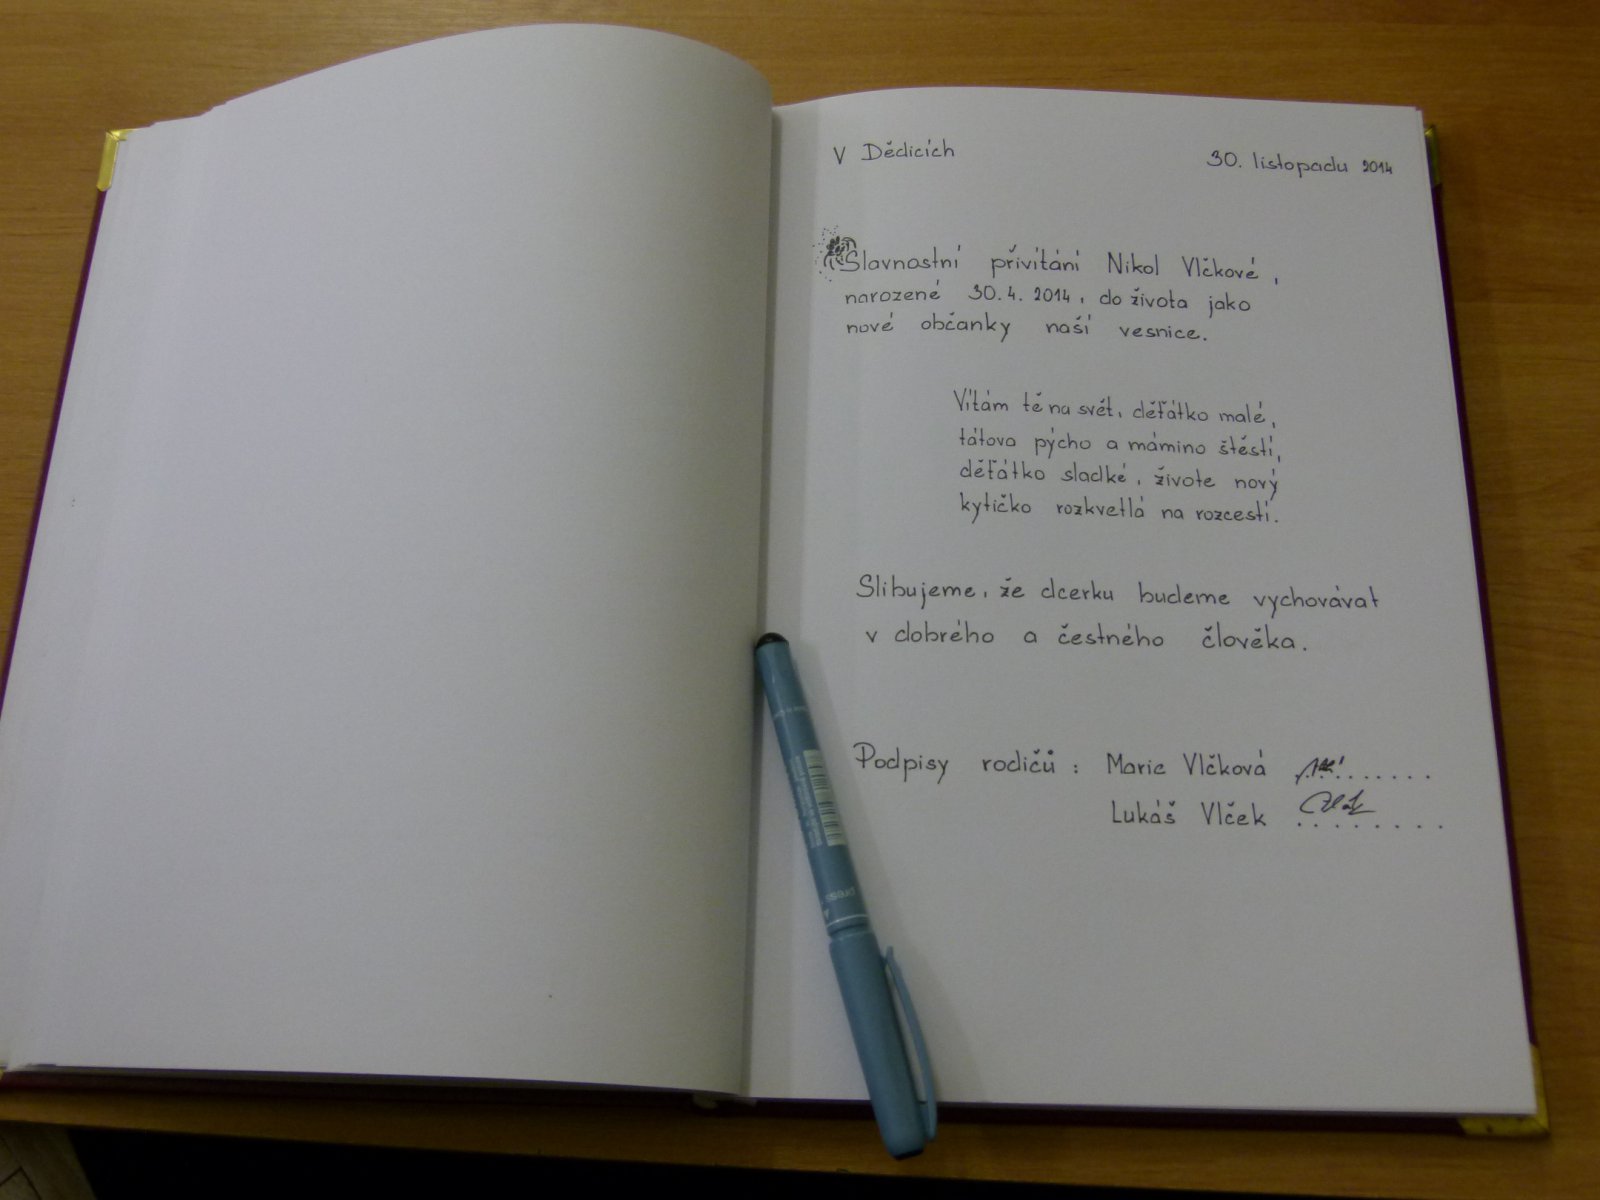 V Dědicích 30. listopadu 2014
Slavnostní přivítání Nikol Vlčkové,
narozené 30.4. 2014, do života jako
nové občanky naší vesnice.
Vítám tě na svět, děťátko malé,
tátova pýcho a mámino štěstí,
děťátko sladké, živote nový
kytičko rozkvetlá na rozcestí.
Slibujeme, že dcerku budeme vychovávat
v dobrého a čestného člověka.
Podpisy rodičů: Marie Vlčková ........
Lukáš Vlček ........
press